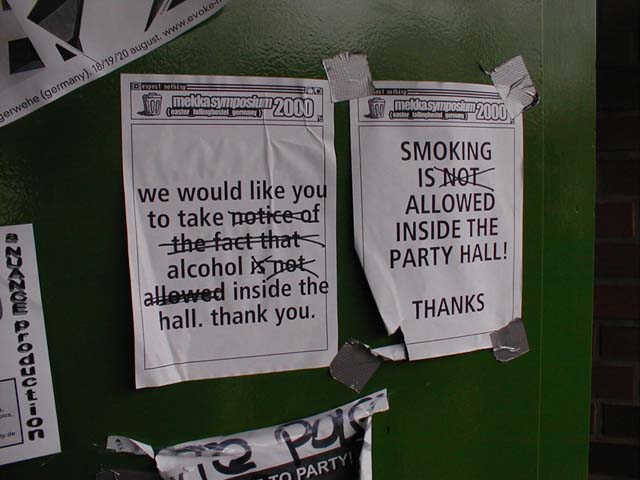 gerwehe (germany), 18/19/20 august. www.evoke-
expect nothing
mekkasymposium 2000
(easter_fallingbostel_germany)
we would like you
to take notice of
the fact that
alcohol is not
allowed inside the
hall. thank you.
mekkasymposium 2000
(easter_fallingbostel_germany)
SMOKING
IS NOT
ALLOWED
INSIDE THE
PARTY HALL!
THANKS
a NUANCE production
TO PARTY!